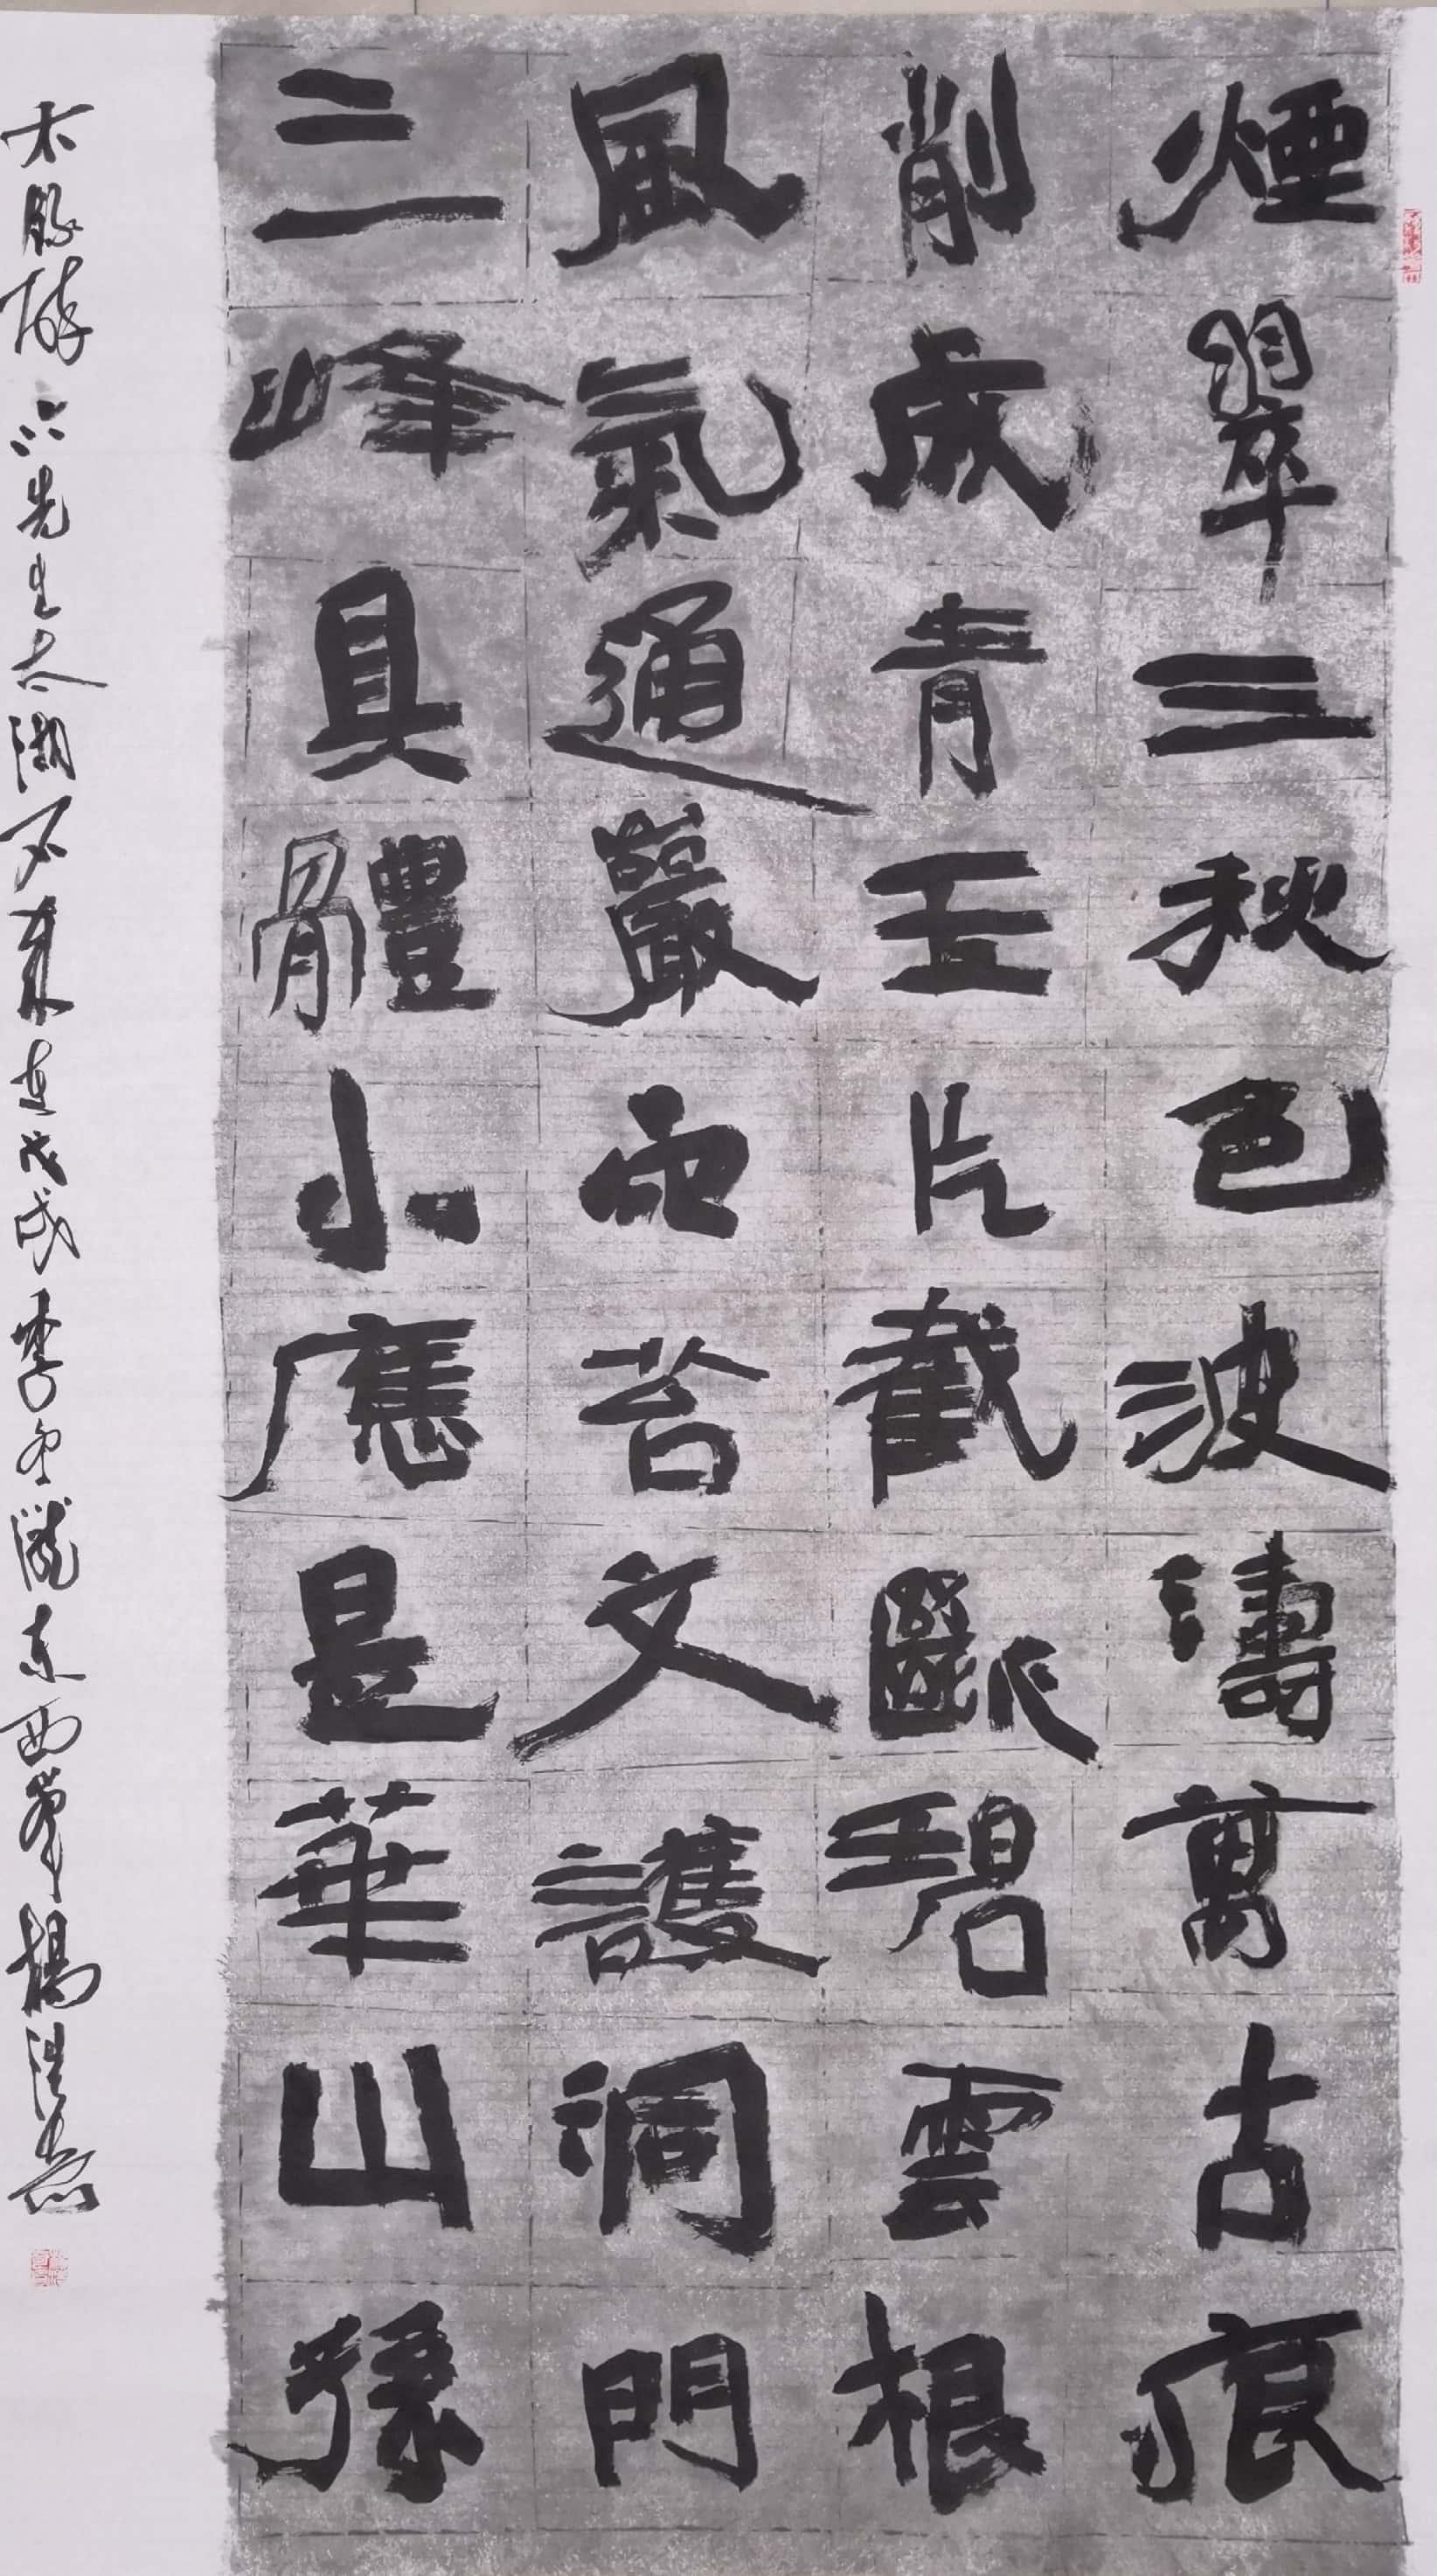 煙翠三秋色波濤萬古痕
削成青玉片截斷碧雲根
風氣通巖穴苔文護洞門
三峰具體小應是華山孫
右錄楊六先生太湖石東 戊戌季冬 東西 楊